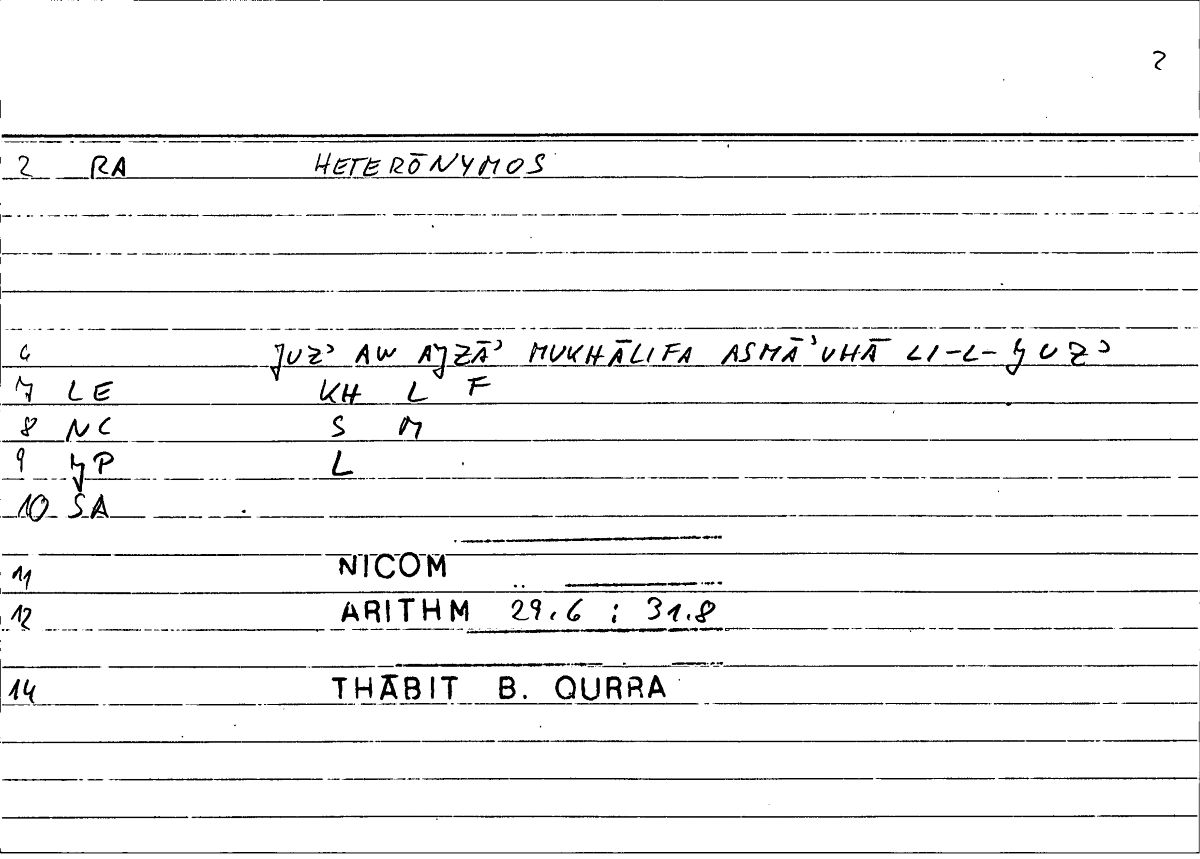 2
2 RA HETERŌNYMOS
6 JUZʾ AW AJZĀʾ MUKHĀLIFA ASMĀʾUHĀ LI-L-JUZʾ
7 LE KH L F
8 NC S M
9 JP L
10 SA
11 NICOM
12 ARITHM 29.6 ; 31.8
14 THĀBIT B. QURRA